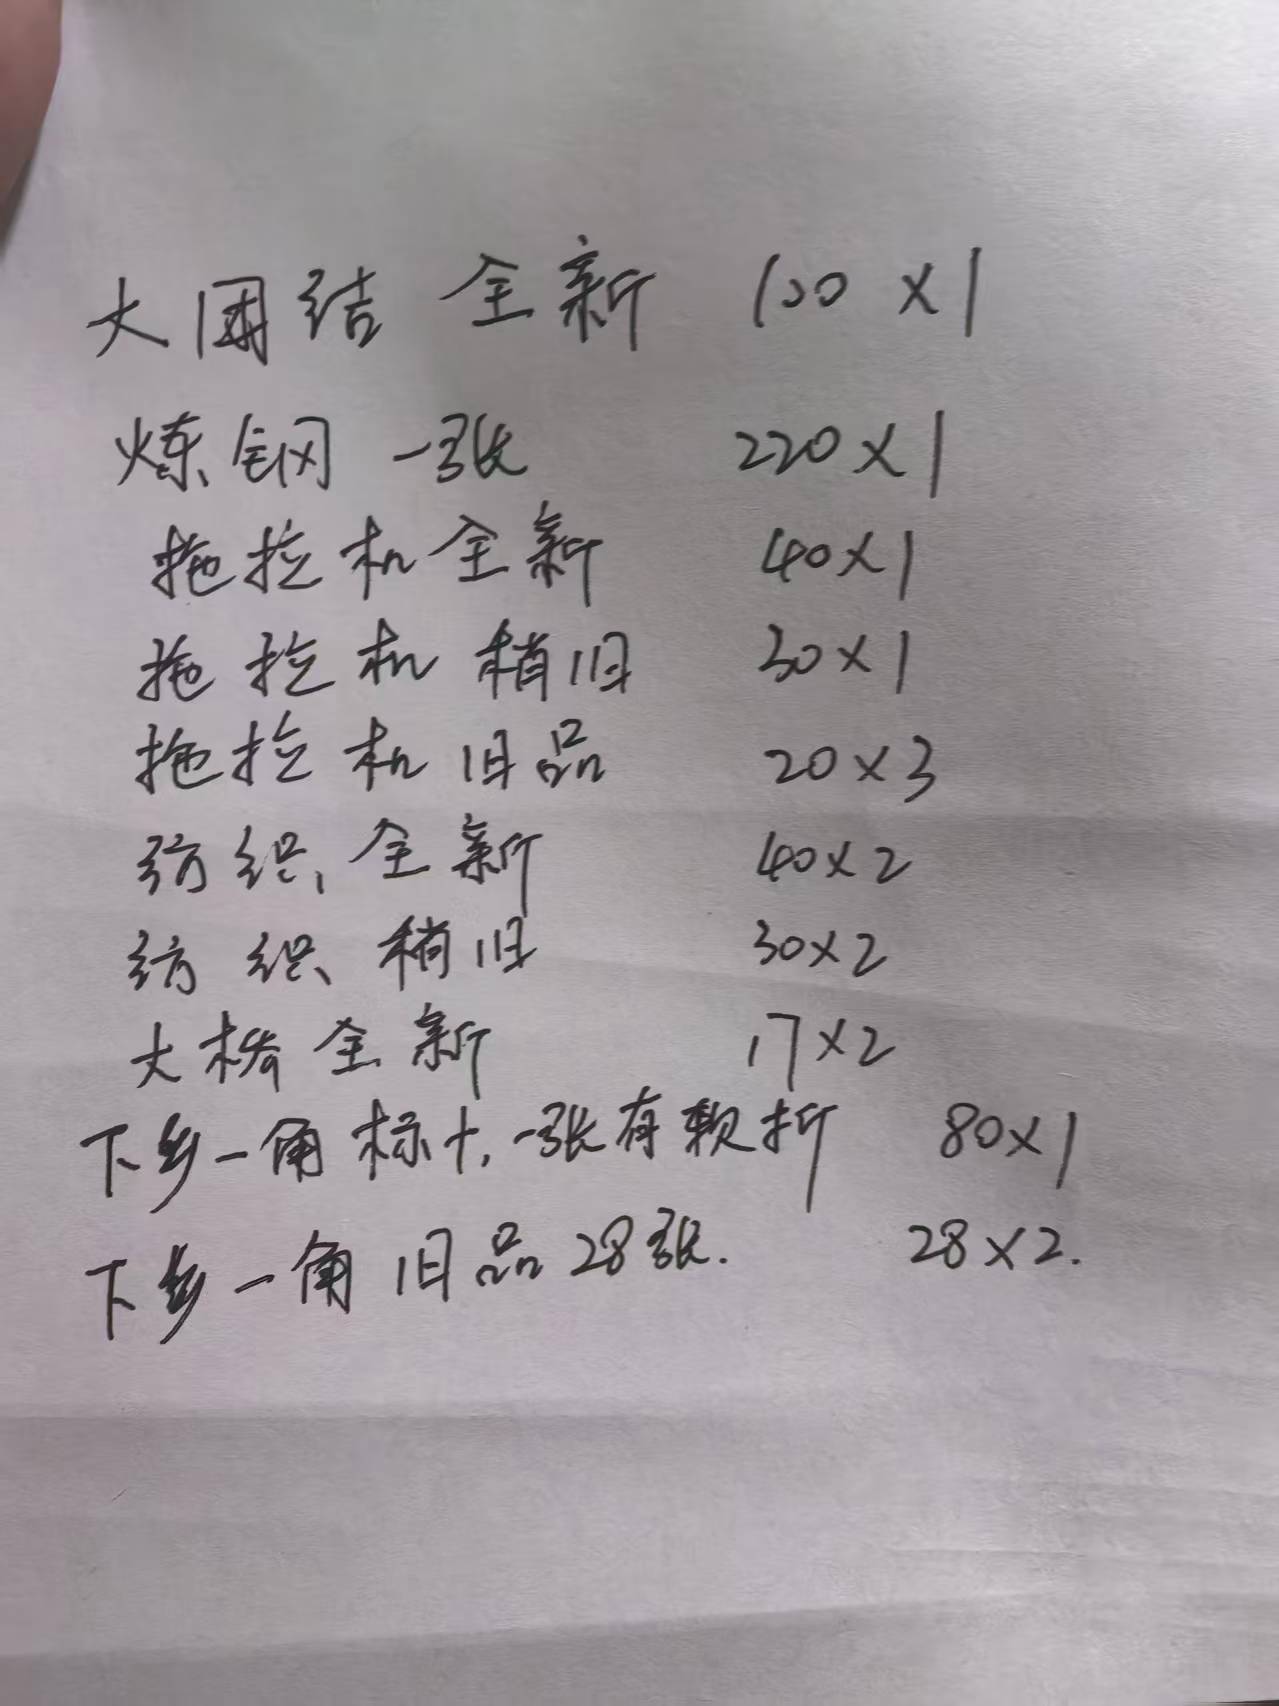 大团结 全新 100 x 1
炼钢 一张 220 x 1
拖拉机全新 40 x 1
拖拉机 稍旧 30 x 1
拖拉机 旧品 20 x 3
纺织、全新 40 x 2
纺织、稍旧 30 x 2
大桥全新 17 x 2
下乡一角标十,一张有软折 80 x 1
下乡一角 旧品 28张. 28 x 2.